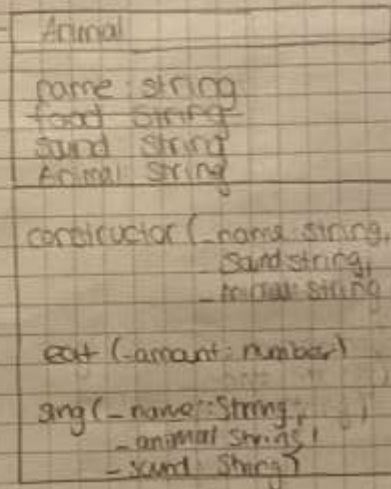 Animal
name: string
food string
sound string
Animal: string
constructor (_name: string,
_sound: string,
_Animal: string
eat (_amount: number)
sing (_name: String,
_animal String,
_sound: String)